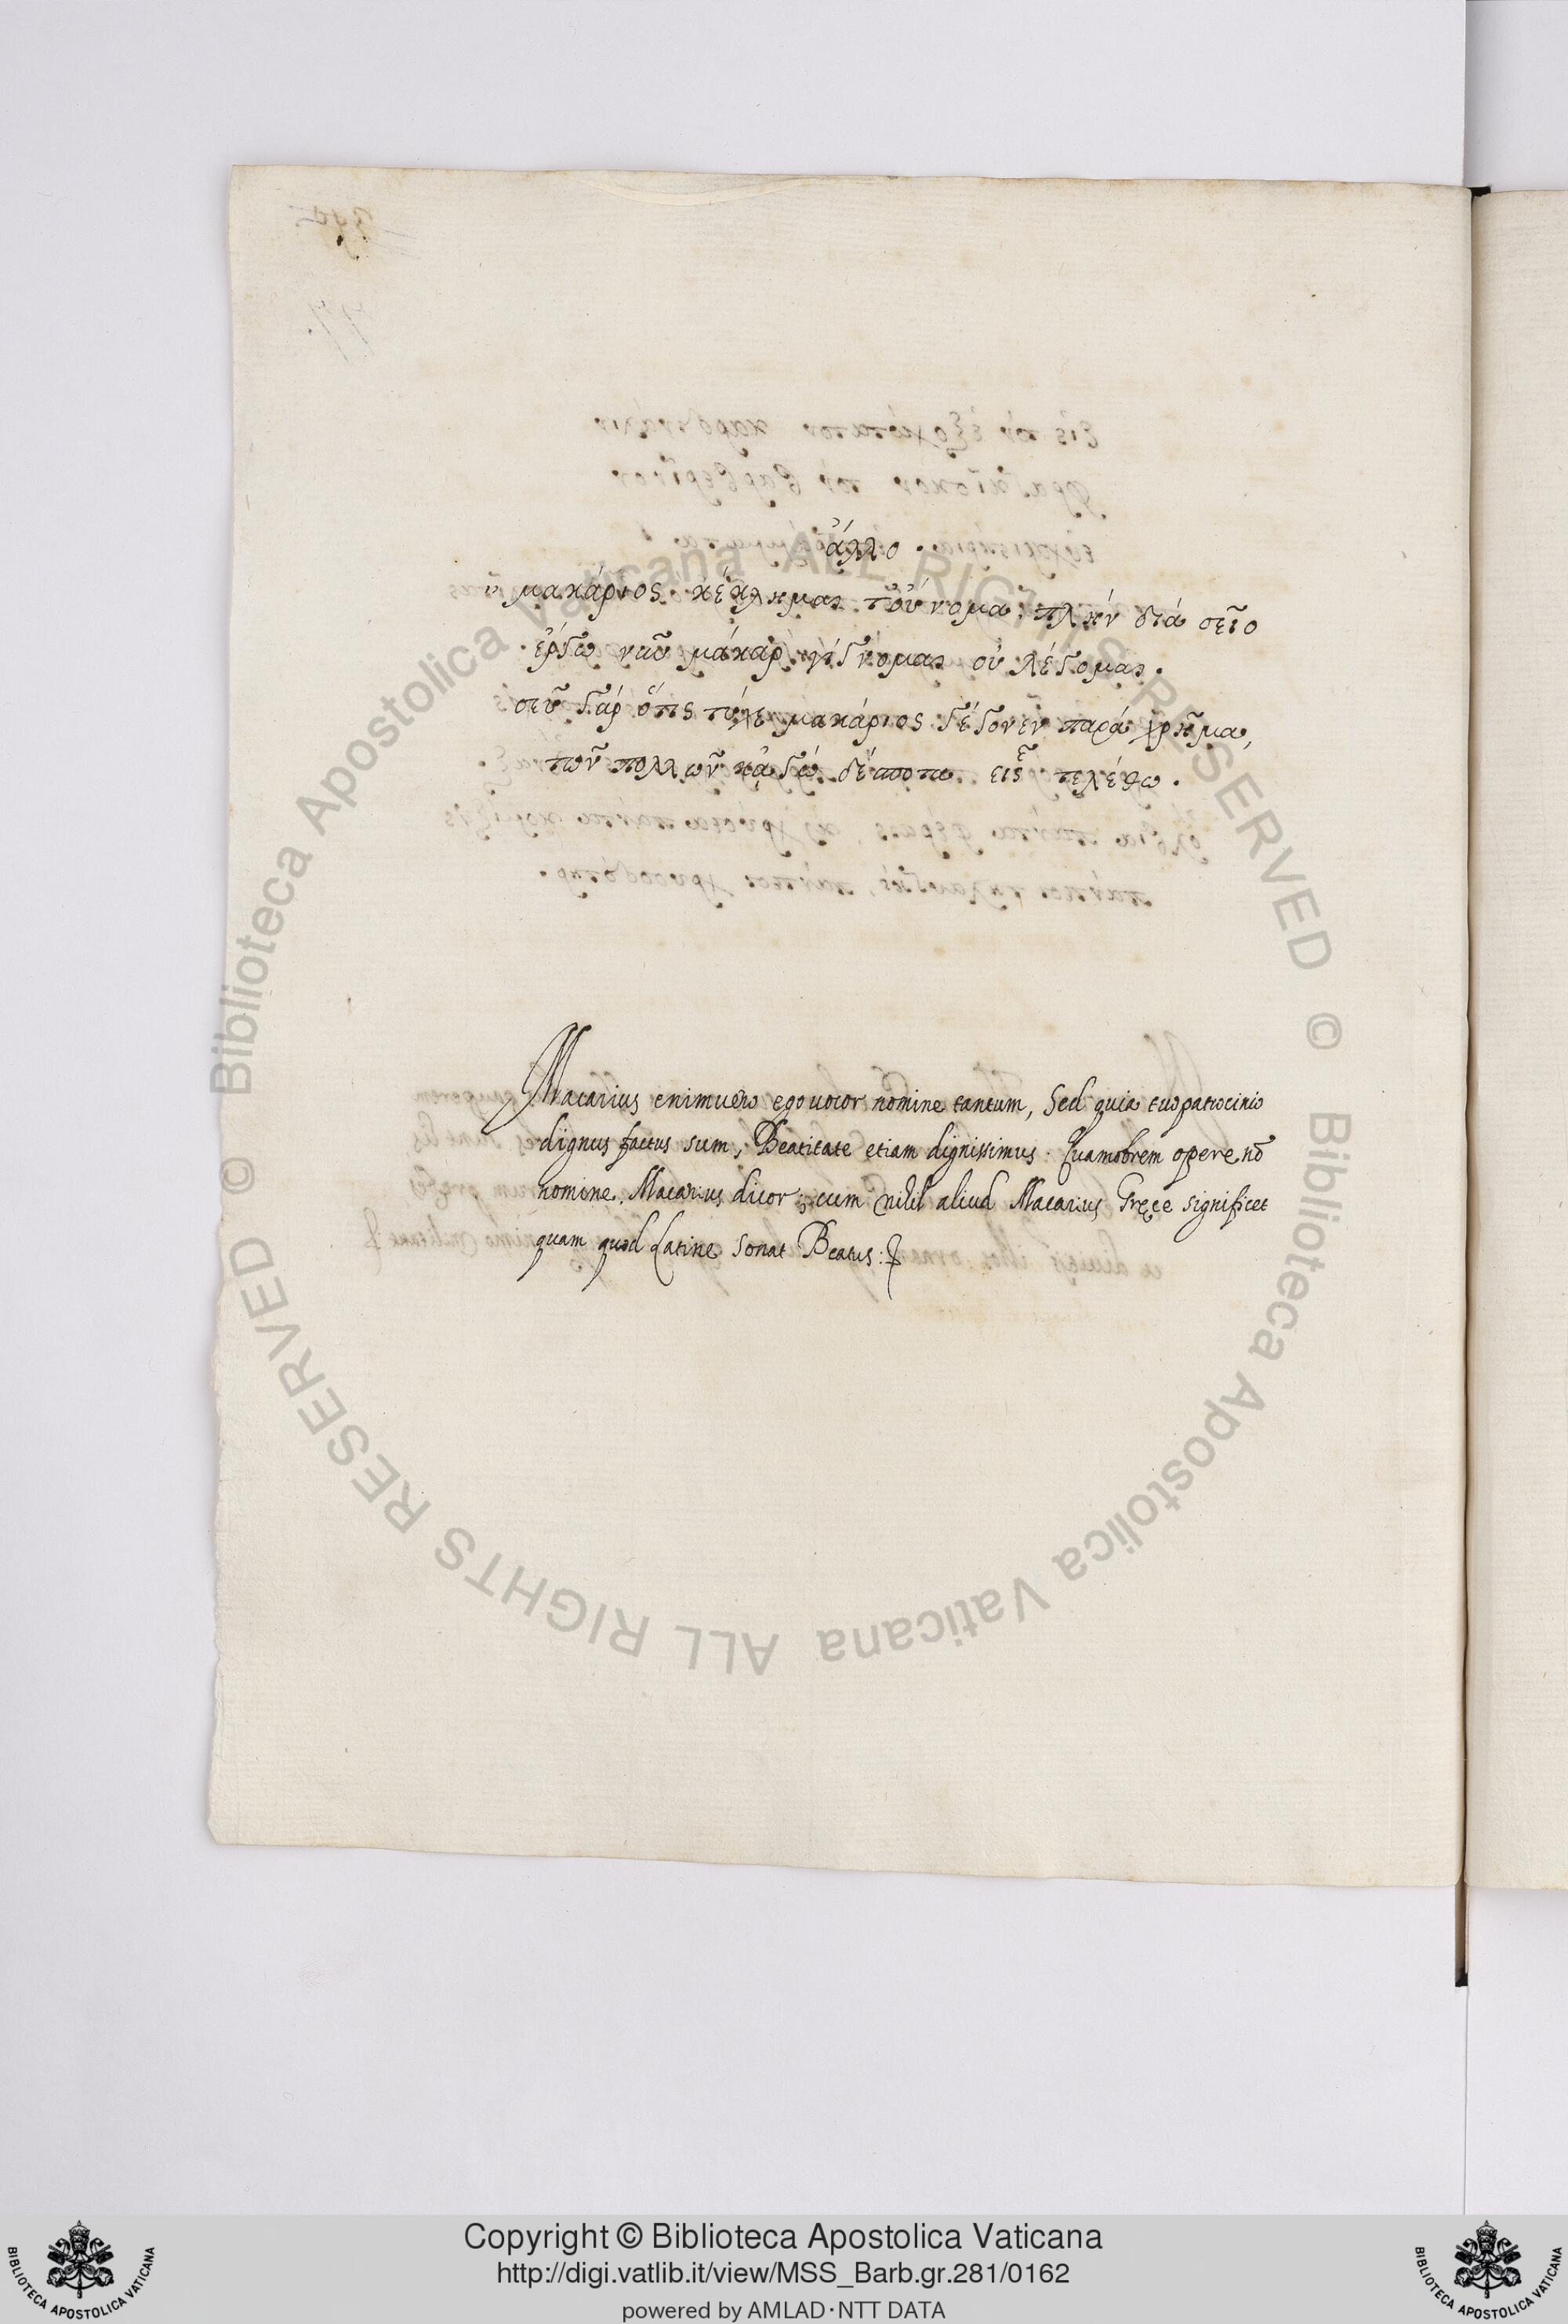 ἄλλο.
μακάριος κέκλημαι τοὔνομα, πλὴν διὰ σεῖο
ἔργῳ νῦν μάκαρ γίγνομαι οὐ λέγομαι.
σεῦ γὰρ ὅτις τύχε μακάριος γέγονεν παρὰ χρῆμα,
τῶν πολλῶν κἀγὼ δέσποτα εἷς τελέθω.
Macarius enimvero ego vocor nomine tantum, Sed quia tuo patrocinio
dignus factus sum, Beatitate etiam dignissimus: Quamobrem opere nō
nomine, Macarius dicor; cum nihil aliud Macarius Gręce significet
quam quod Latine sonat Beatus:
Biblioteca Apostolica Vaticana ALL RIGHTS RESERVED ©
Biblioteca Apostolica Vaticana ALL RIGHTS RESERVED ©
Copyright © Biblioteca Apostolica Vaticana
http://digi.vatlib.it/view/MSS_Barb.gr.281/0162
powered by AMLAD·NTT DATA
BIBLIOTECA APOSTOLICA VATICANA
BIBLIOTECA APOSTOLICA VATICANA